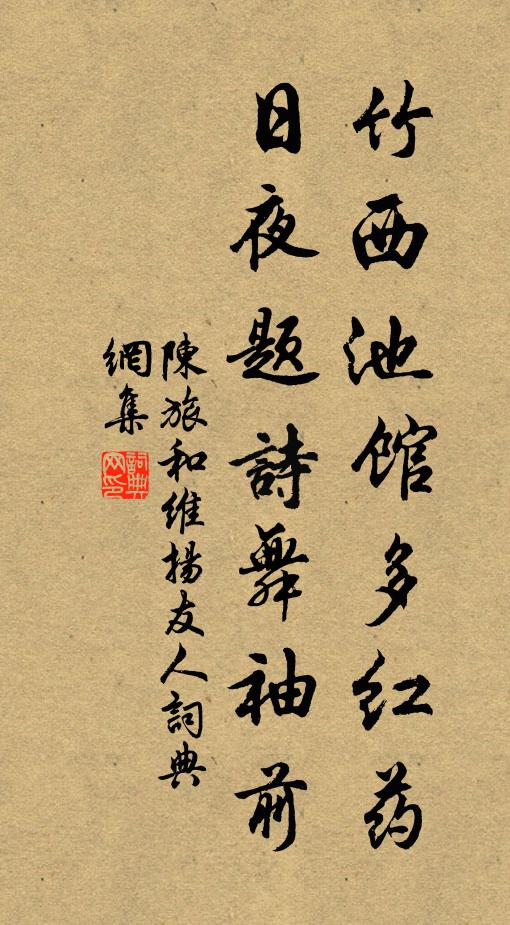 竹西池馆多红药
日夜题詩舞袖前
陳旅和維揚友人詞典
網集
詞典網印